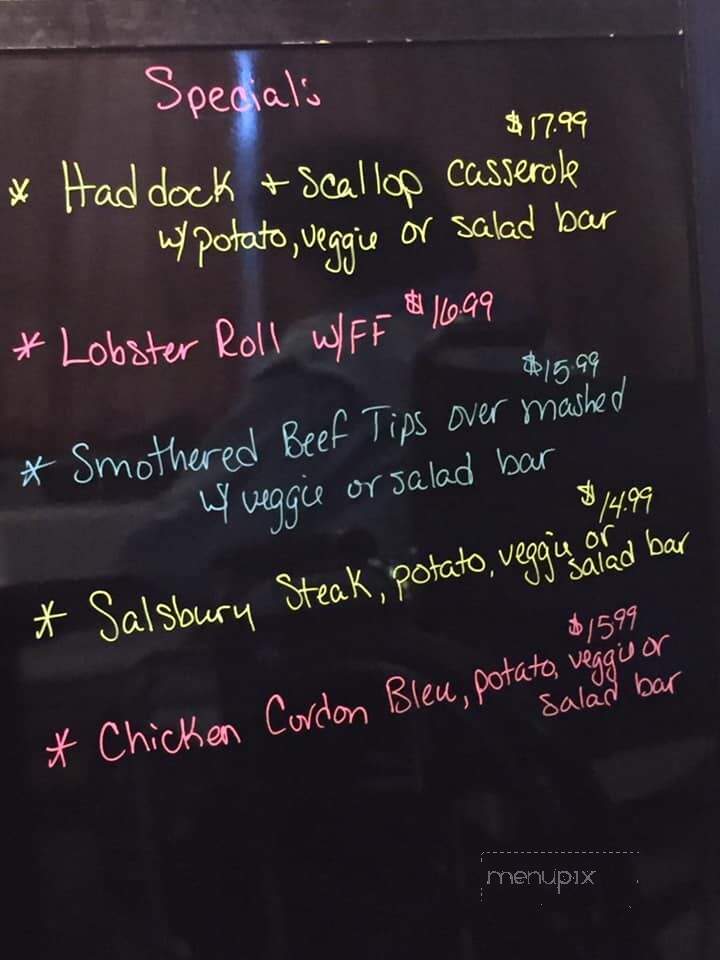 Special's
$17.99
* Haddock + Scallop casserole
w/ potato, veggie or salad bar
* Lobster Roll w/FF $16.99
$15.99
* Smothered Beef Tips over mashed
w/ veggie or salad bar
$14.99
* Salsbury Steak, potato, veggie or
salad bar
$1599
* Chicken Cordon Bleu, potato, veggie or
salad bar
menupix